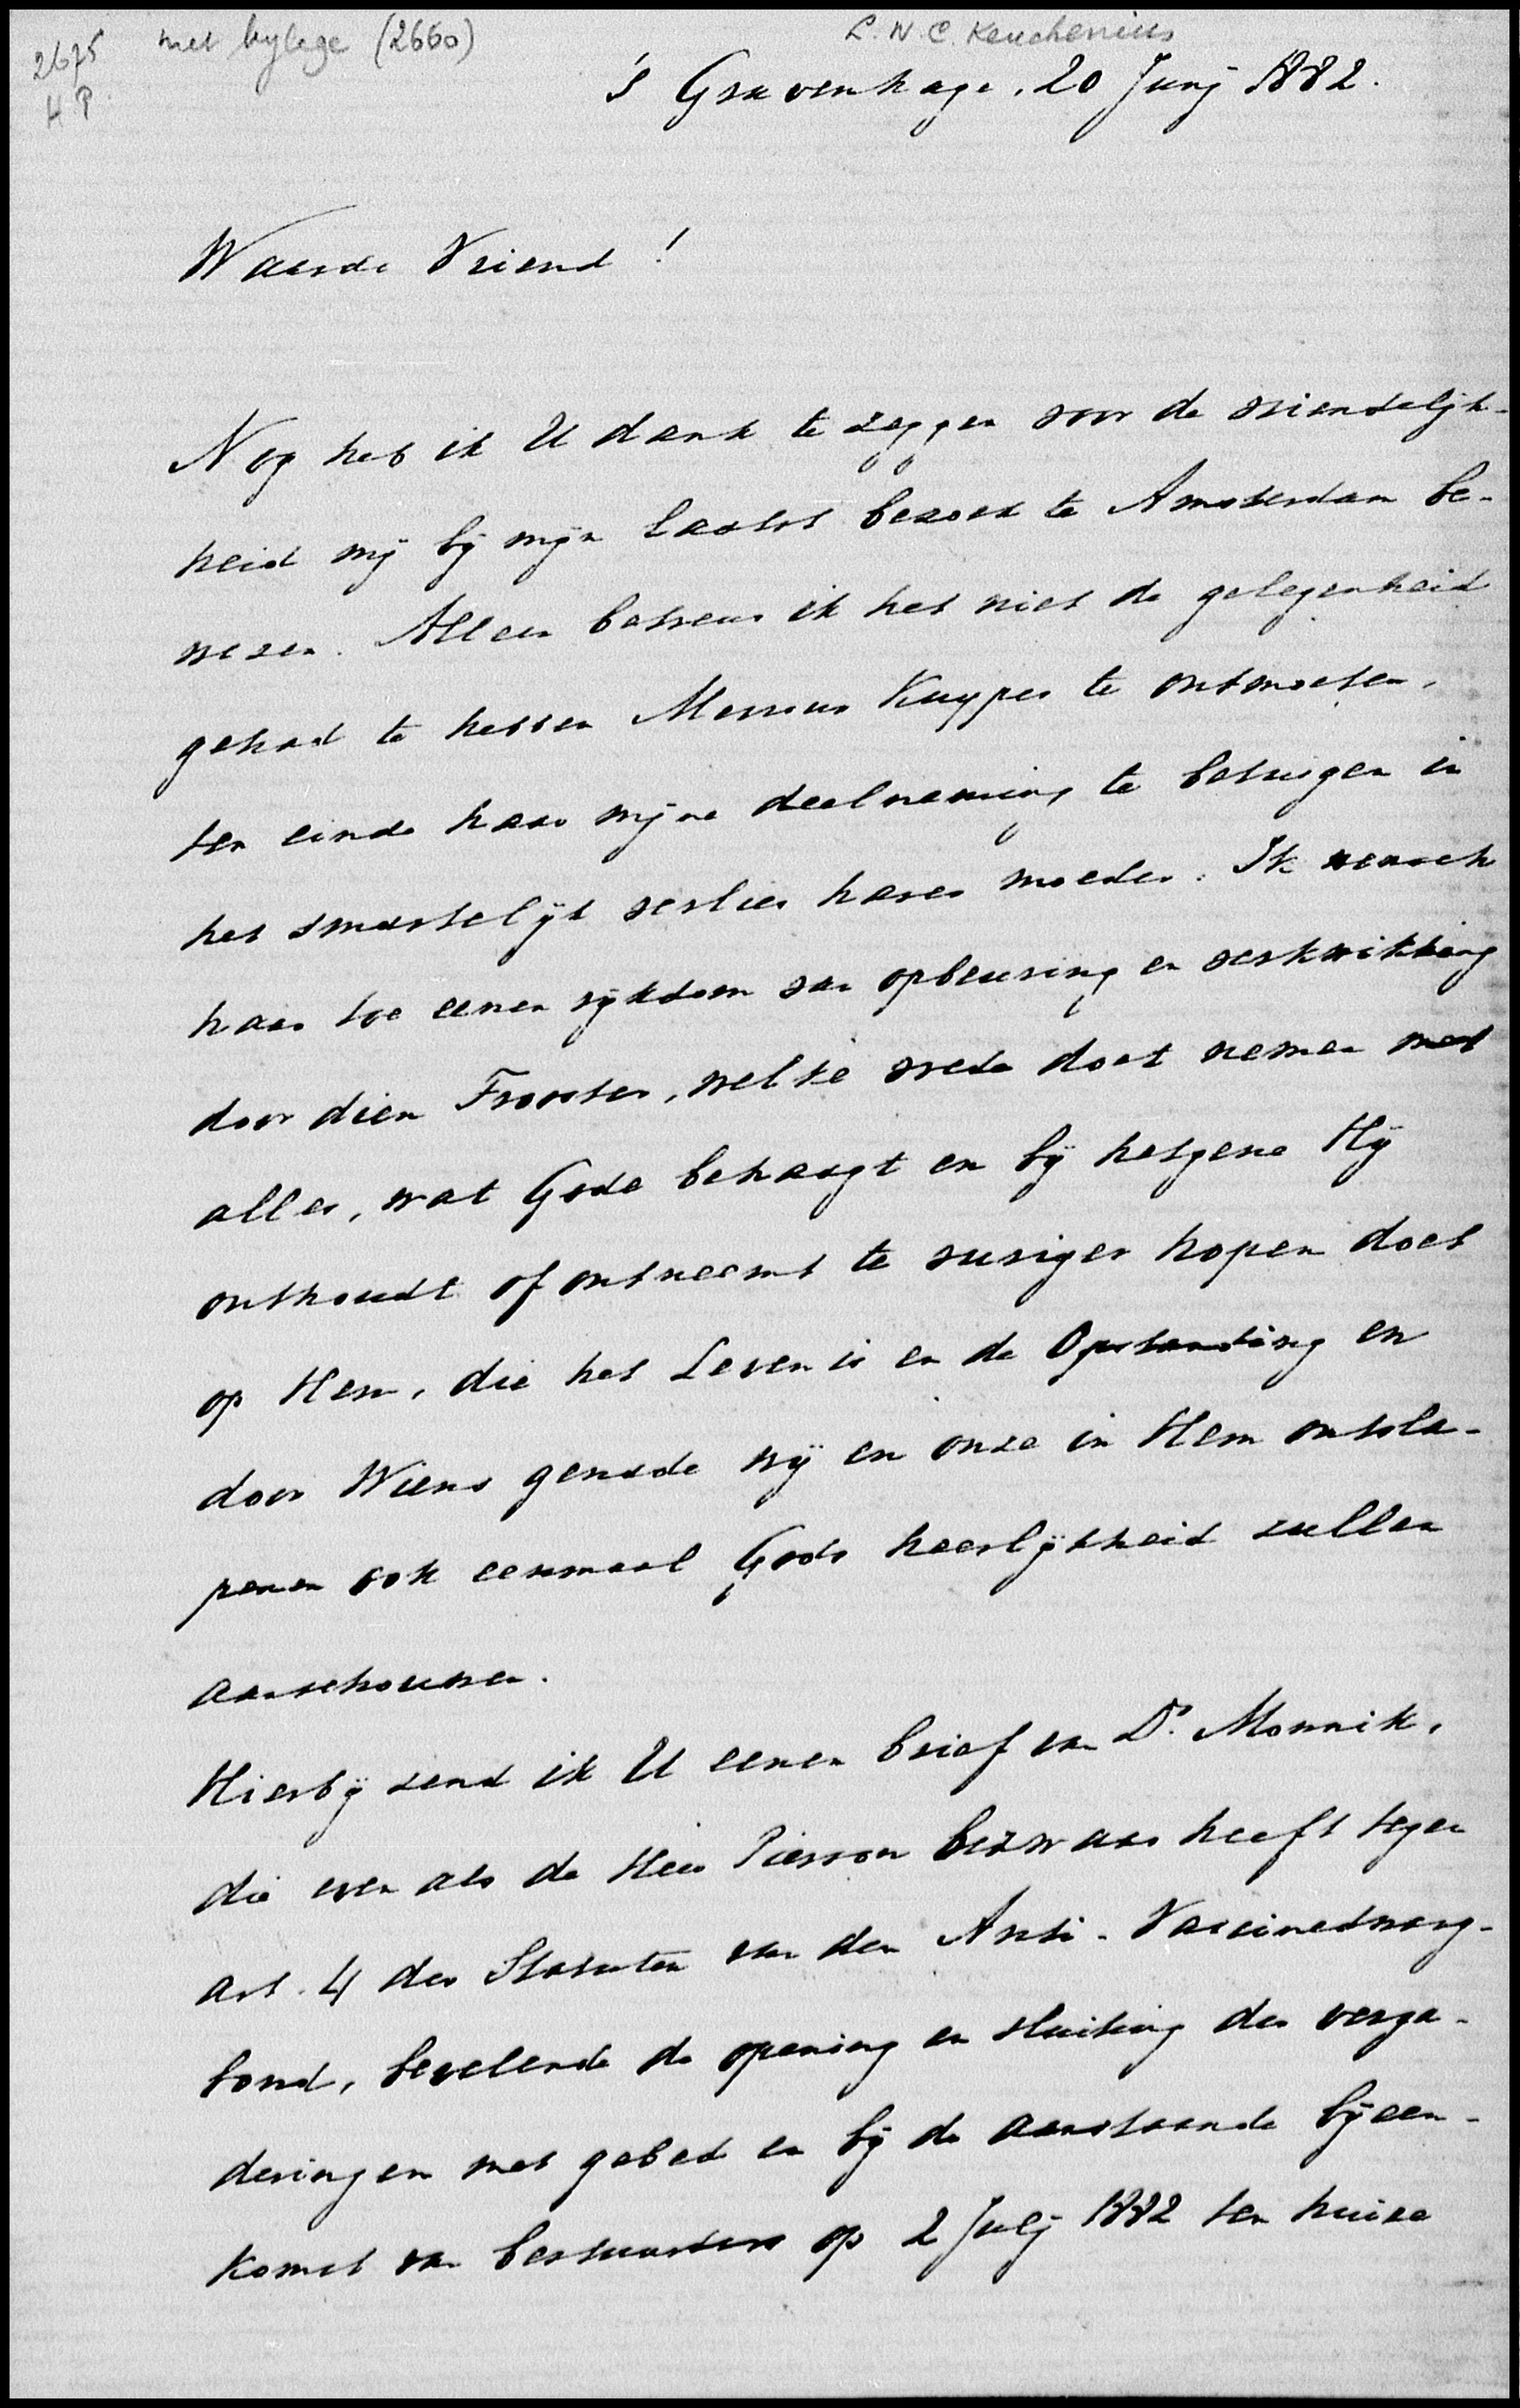 2675
HP
met bylage (2660)
L.N.C. Keuchenius
's Gravenhage, 20 Junij 1882.
Waarde Vriend!
Nog heb ik U dank te zeggen voor de vriendelijk-
heid mij bij mijn laatst bezoek te Amsterdam be-
wezen. Alleen betreur ik het niet de gelegenheid
gehad te hebben Mevrouw Kuyper te ontmoeten,
ten einde haar mijne deelneming te betuigen in
het smartelijk verlies harer moeder. Ik wensch
haar toe eenen rijkdom van opbeuring en verkwikking
door dien Trooster, welke vrede doet nemen met
alles, wat Gode behaagt en bij hetgene Hij
onthoudt of ontneemt te vuriger hopen doet
op Hem, die het Leven is en de Opstanding en
door Wiens genade wij en onze in Hem ontsla-
penen ook eenmaal Gods heerlijkheid zullen
aanschouwen.
Hierbij zend ik U eenen brief van Ds. Monnik,
die even als de Heer Pierson bezwaar heeft tegen
art. 4 der Statuten van den Anti-Vaccinedwang-
bond, bevelende de opening en sluiting der verga-
deringen met gebed en bij de aanstaande bijeen-
komst van bestuurders op 2 Julij 1882 ten huize